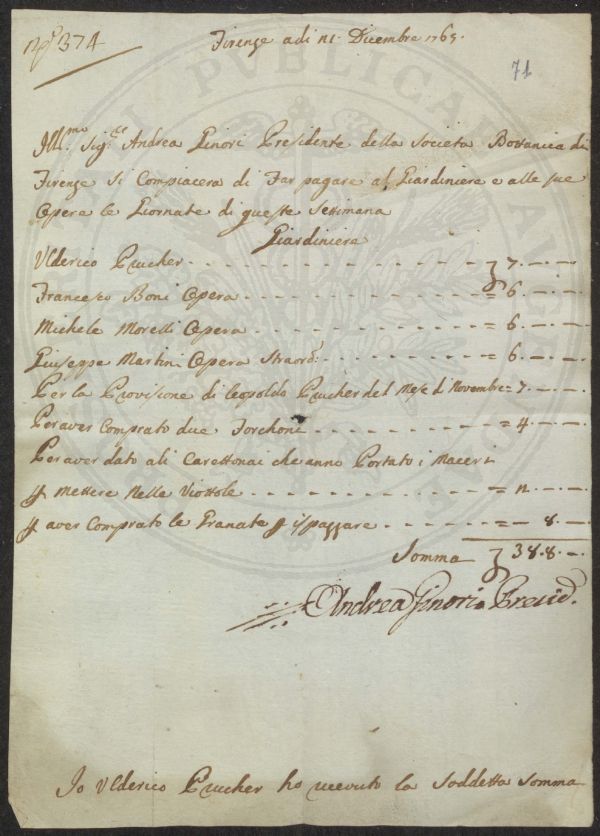 N.º 374
Firenze adi 21. Dicembre 1765.
71
Ill.mo Sig.re Andrea Ginori Presidente della Societa Bottanica di
Firenze si Compiacera di Far pagare al Giardiniere e alle sue
Opera le Giornate di queste Settimana
Giardiniera
Ulderico Prucher - - - - - - - 7.-.-
Francesco Boni Opera - - - - - - - = 6.-.-
Michele Morelli Opera - - - - - - - = 6.-.-
Giuseppe Martini Opera Straord. - - - - - = 6.-.-
Per la Provisione di Leopoldo Prucher del Mese di Novembre = 7.-.-
Per aver Comprato due Forchoni - - - - - - = 4.-.-
Per aver dato ali Carettonai che anno Portato i Maceri
p Mettere Nelle Viottole - - - - - - - = 2.-.-
p aver Comprato le Granate p ispazzare - - - - - = - 8.-
Somma 38.8.-
Andrea Ginori Presid.
Io Ulderico Prucher ho riceuto la Soddetta Somma